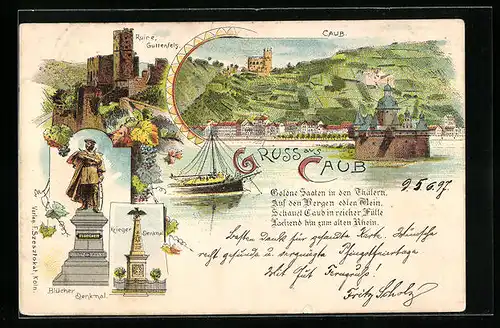 Ruine
Guttenfels.
CAUB.
GRUSS aus
CAUB
9.5.6.97
Goldne Saaten in den Thälern,
Auf den Bergen edlen Wein,
Schauet Caub in reicher Fülle
Lachend hin zum alten Rhein.
Krieger Denkmal
Blücher
Denkmal.
Verlag
Köln.
Besten Dank für gesandte Karte. Wünsche
recht gesunde u. vergnügte Pfingstfeiertage
Mit
Fritz Scholz